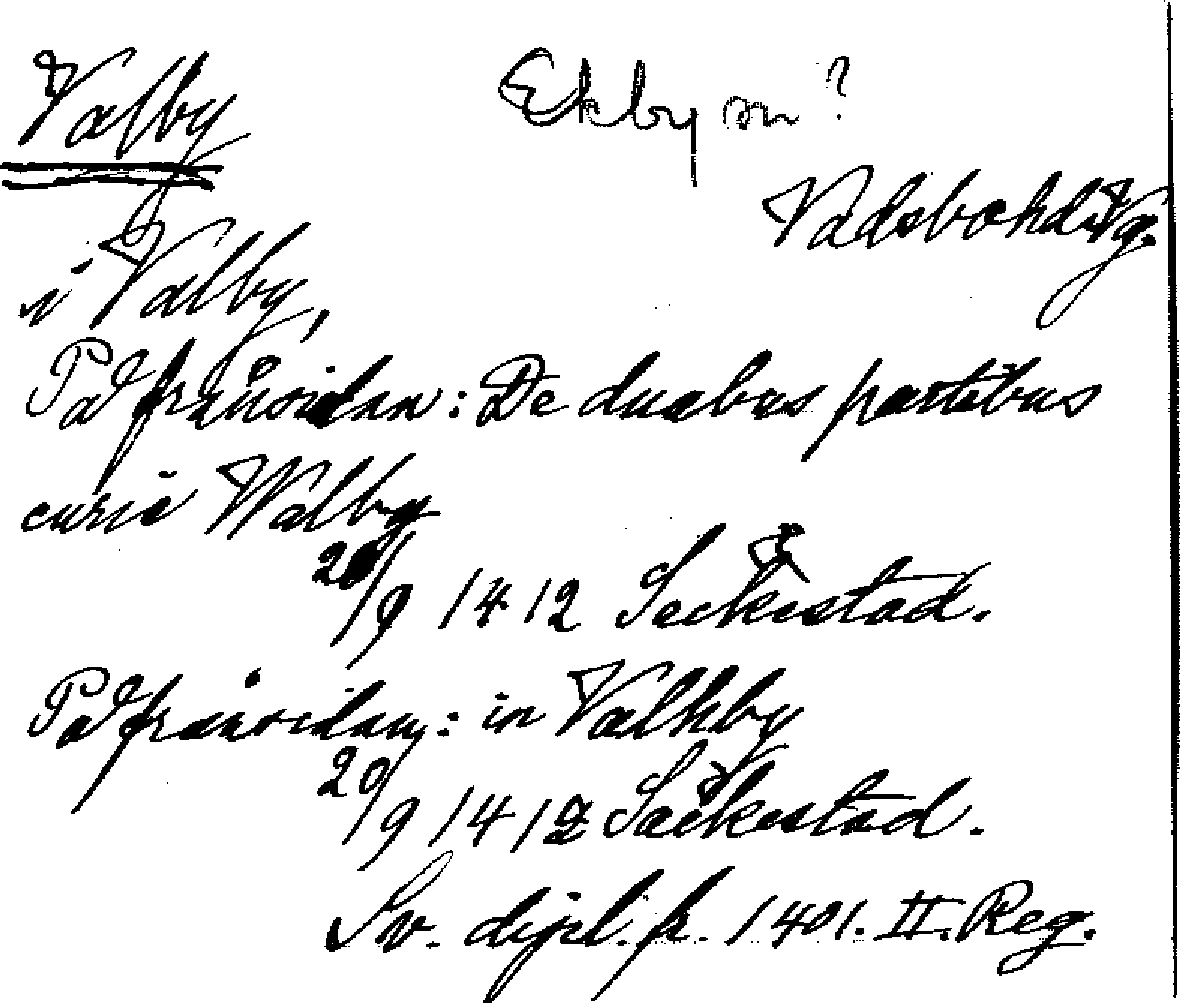 Valby
Ekby sn?
Vadsbo hd. Vg.
i Valby,
På frånsidan: De duabus partibus
curie Walby
20/9 1412 Seckestad.
På frånsidan: in Valkby
20/9 1412 Säckestad.
Sv. dipl. fr. 1401. II. Reg.